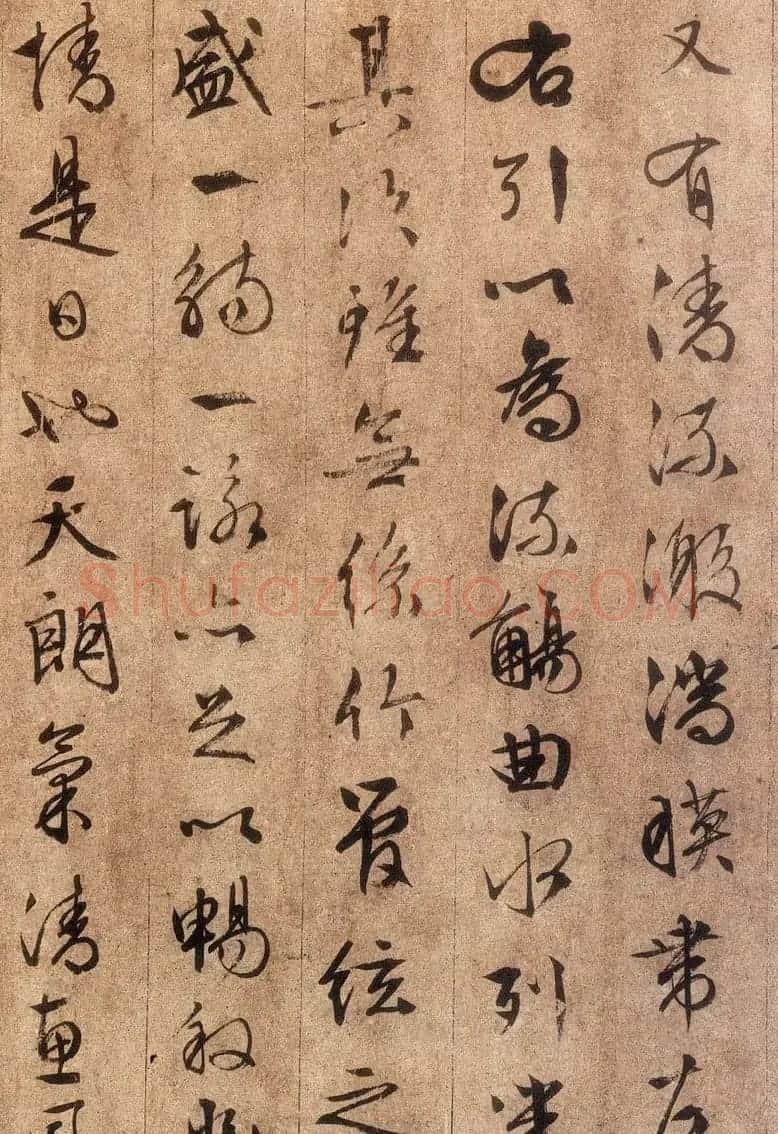 又有清流激湍暎帶左
右引以為流觴曲水列坐
其次雖無絲竹管絃之
盛一觴一詠亦足以暢敘幽
情是日也天朗氣清惠風
Shufaziliao.COM